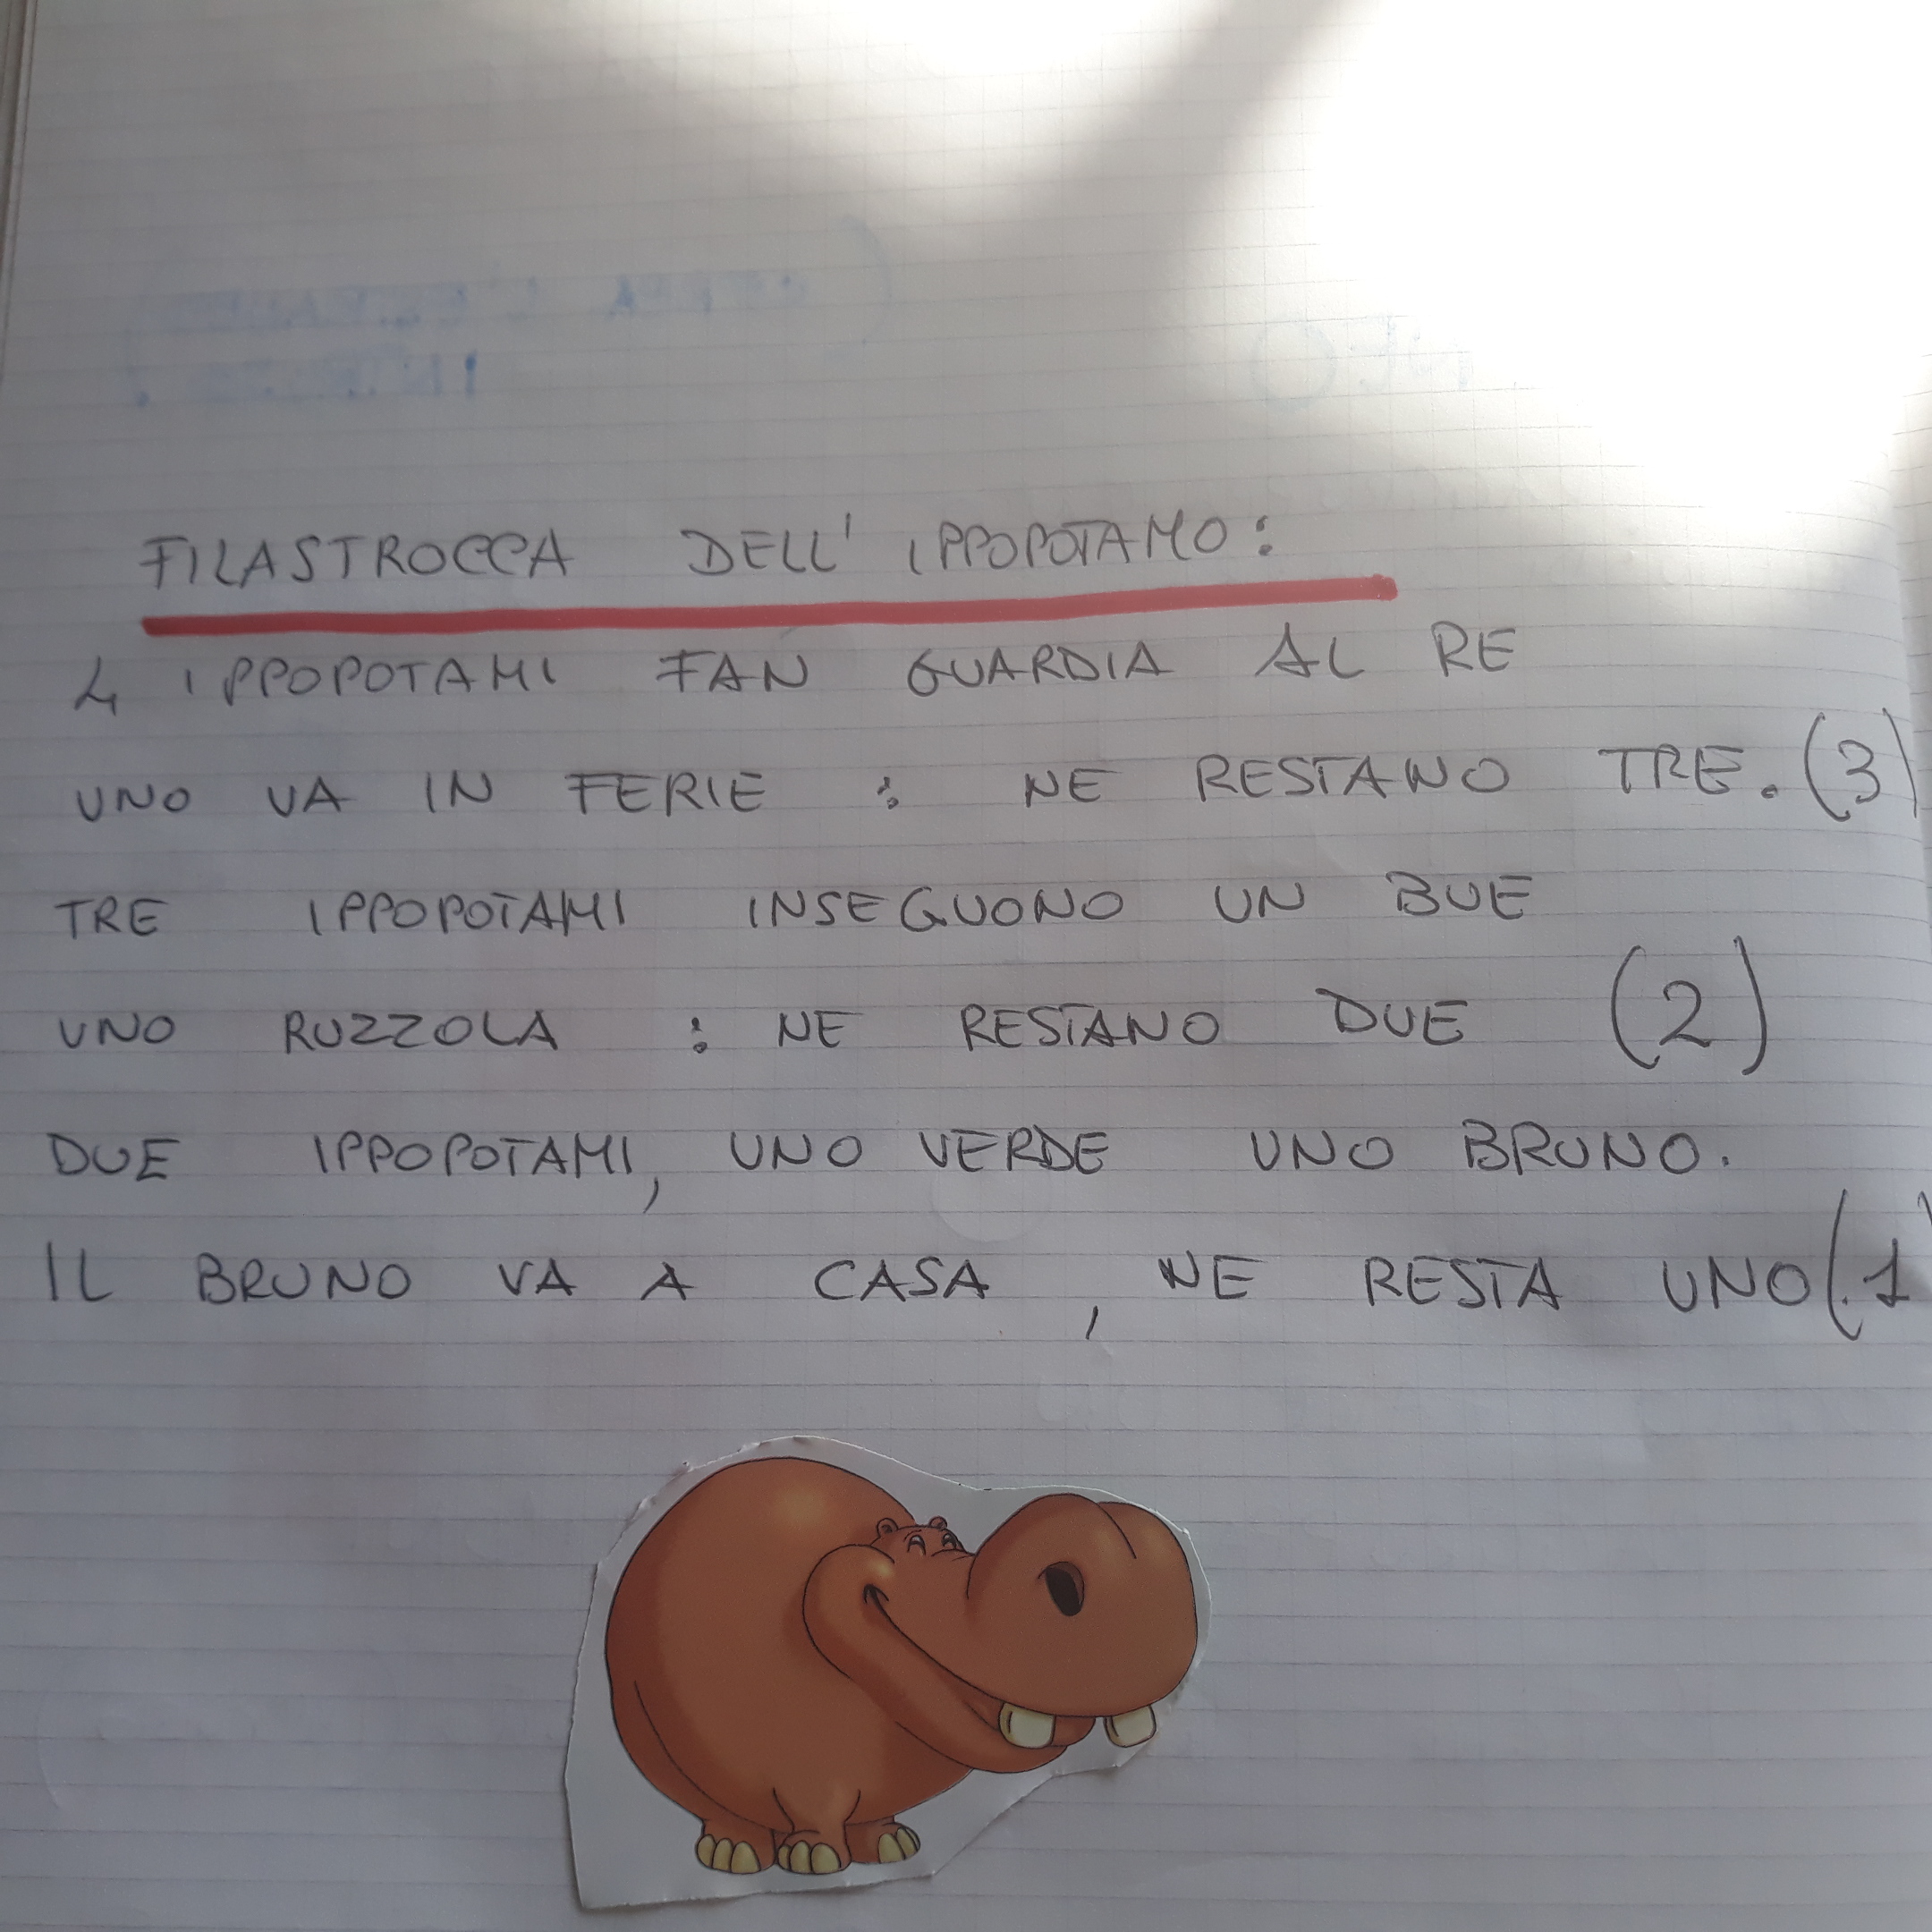 FILASTROCCA DELL' IPPOPOTAMO:
4 IPPOPOTAMI FAN GUARDIA AL RE
UNO VA IN FERIE : NE RESTANO TRE. (3)
TRE IPPOPOTAMI INSEGUONO UN BUE
UNO RUZZOLA : NE RESTANO DUE (2)
DUE IPPOPOTAMI, UNO VERDE UNO BRUNO.
IL BRUNO VA A CASA, NE RESTA UNO (1